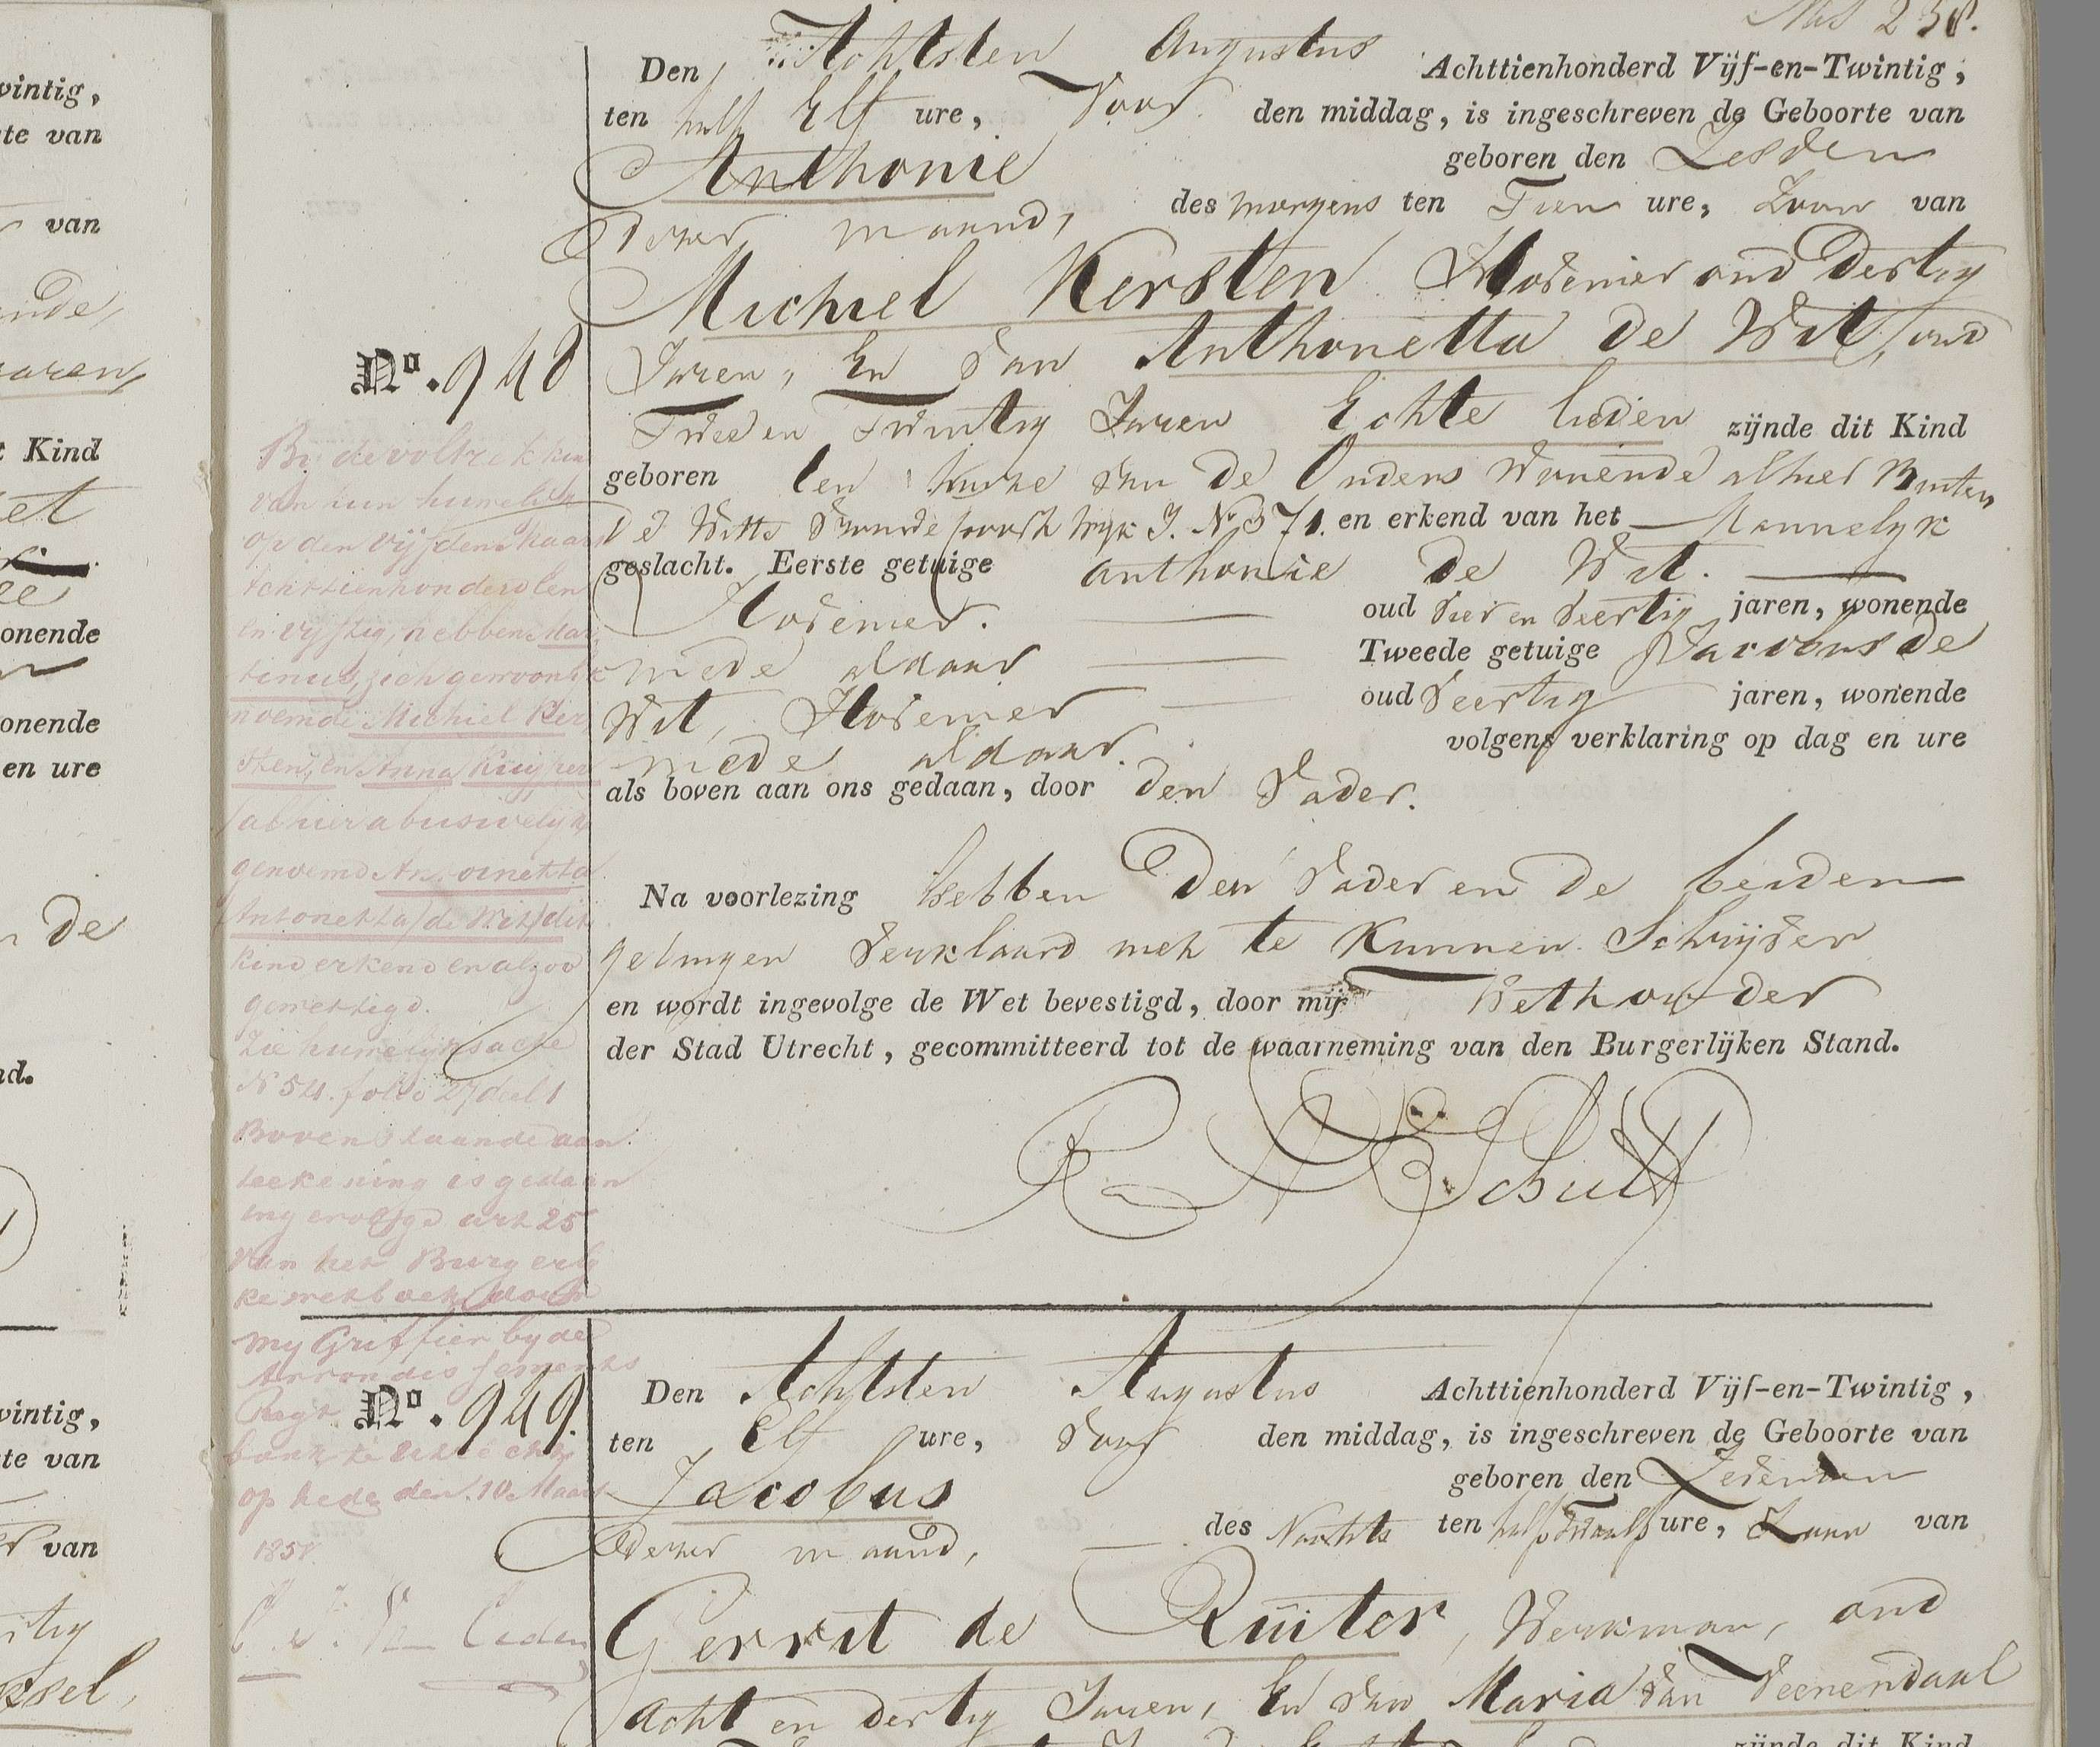 vintig,
te van
van
aaren,
t Kind
et
onende
onende
en ure
de
nd.
vintig,
te van
van
ssel,
238.
Den Achtsten Augustus Achttienhonderd Vijf-en-Twintig,
ten half Elf ure, Voor den middag, is ingeschreven de Geboorte van
Anthonie geboren den Zesden
dezer maand, des morgens ten Tien ure, Zoon van
Michiel Kersten Hovenier oud Dertig
Jaren, En van Anthonetta de Wit, oud
Twee en Twintig Jaren Echte lieden zijnde dit Kind
geboren ten huize van de Ouders Wonende alhier Buiten
de Witte Vrouwe poort Wyk J. No 371. en erkend van het Mannelyk
geslacht. Eerste getuige Anthonie de Wit.
Hovenier. oud Vier en Veertig jaren, wonende
mede aldaar Tweede getuige Jacobus de
Wit, Hovenier oud Veertig jaren, wonende
mede aldaar. volgens verklaring op dag en ure
als boven aan ons gedaan, door den Vader.
Na voorlezing hebben den Vader en de beiden
getuigen Verklaard niet te Kunnen Schrijven
en wordt ingevolge de Wet bevestigd, door mij Wethouder
der Stad Utrecht, gecommitteerd tot de waarneming van den Burgerlijken Stand.
No. 948
Bij de voltrekking
van hun huwelijk
op den vijfden Maart
achttienhonderd een
en vijftig, hebben Mar
tinus, zich gewoonlijk
noemde Michiel Ker
sten, en Anna Kuijper
(alhier abusivelijk
genoemd Anthonetta
Antonetta) de Wit, dit
kind erkend en alzoo
gewettigd.
Zie huwelijksacte
N 54. folio 27 deel 1
Bovenstaande aan
teekening is gedaan
ingevolge art 25
van het Burgerly
ke wetboek door
my Griffier by de
Arrondissements
Regt
bank te Utrecht
op heden den 10 Maart
185
No. 949.
Den Achtsten Augustus Achttienhonderd Vijf-en-Twintig,
ten Elf ure, Voor den middag, is ingeschreven de Geboorte van
Jacobus geboren den Zevenden
dezer maand, des Nachts ten half Twaalf ure, Zoon van
Gerrit de Ruiter, Werkman, oud
Acht en dertig Jaren, En van Maria van Veenendaal
zijnde dit Kind